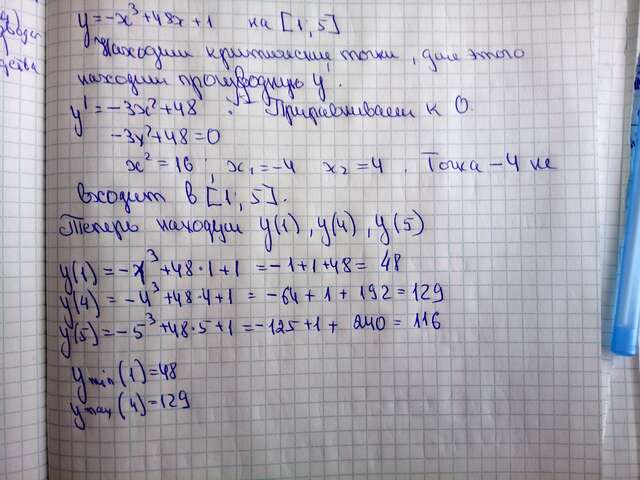 y = -x³ + 48x + 1 на [1; 5]
Находим критические точки, для этого
находим производную y.
y' = -3x² + 48. Приравниваем к 0.
-3x² + 48 = 0
x² = 16; x₁ = -4 x₂ = 4. Точка -4 не
входит в [1; 5].
Теперь находим y(1), y(4), y(5)
y(1) = -1³ + 48·1 + 1 = -1 + 1 + 48 = 48
y(4) = -4³ + 48·4 + 1 = -64 + 1 + 192 = 129
y(5) = -5³ + 48·5 + 1 = -125 + 1 + 240 = 116
y min (1) = 48
y max (4) = 129